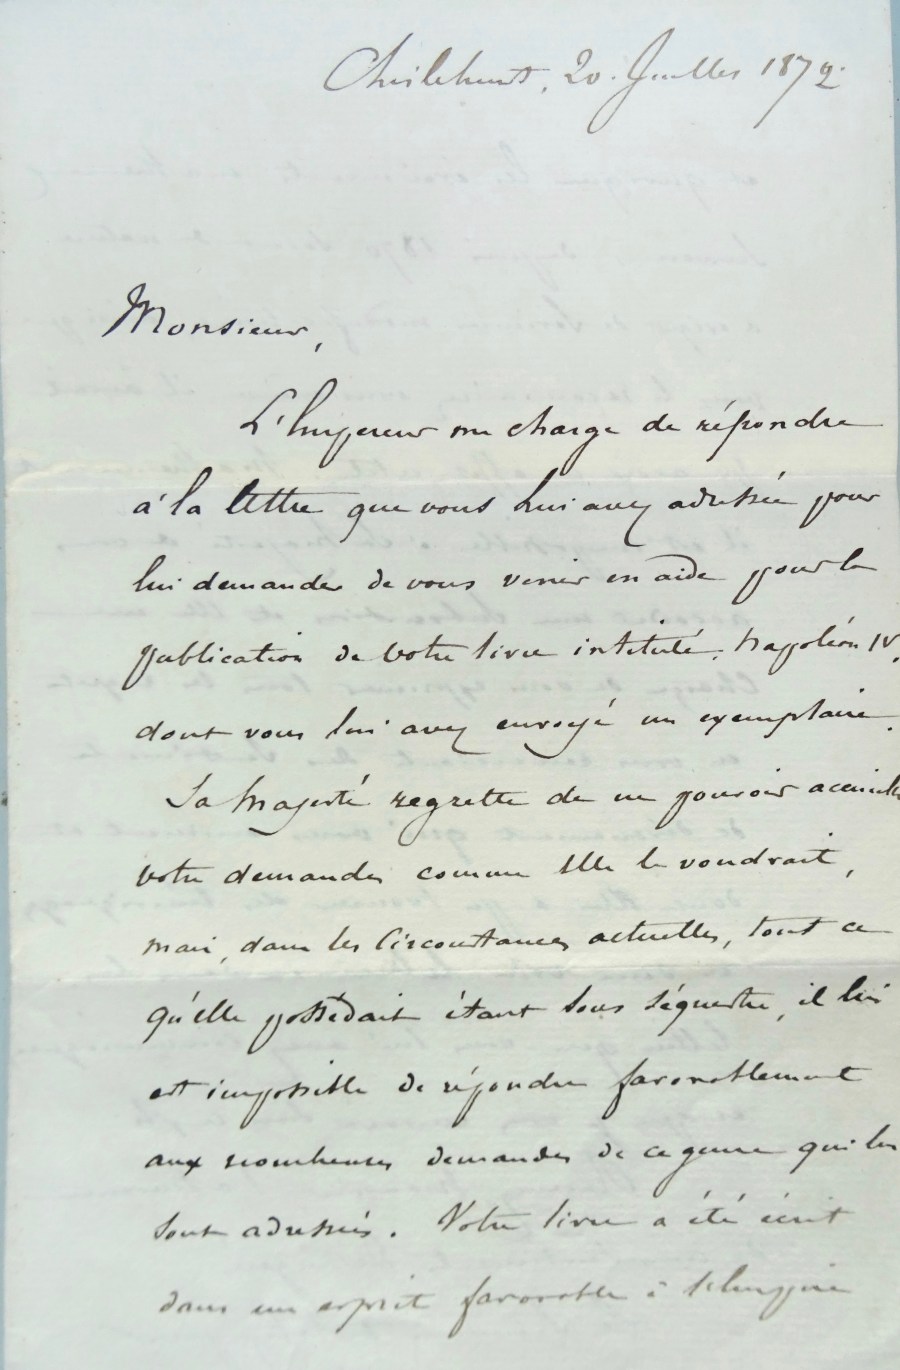 Chislehurst, 20. Juillet 1872.
Monsieur,
L'Empereur me charge de répondre
à la lettre que vous lui avez adressée pour
lui demander de vous venir en aide pour la
publication de votre livre intitulé, Napoléon IV,
dont vous lui avez envoyé un exemplaire.
Sa Majesté regrette de ne pouvoir accueillir
votre demande comme Elle le voudrait,
mais, dans les Circonstances actuelles, tout ce
qu'elle possédait étant sous séquestre, il lui
est impossible de répondre favorablement
aux nombreuses demandes de ce genre qui lui
sont adressées. Votre livre a été écrit
dans un esprit favorable à l'Empire